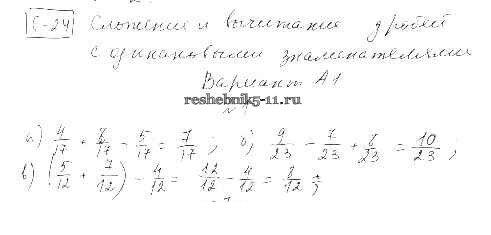 С-24 Сложение и вычитание дробей
с одинаковыми знаменателями
Вариант А1
reshebnik5-11.ru
№1
а) 4/17 + 8/17 - 5/17 = 7/17 ; б) 9/23 - 7/23 + 8/23 = 10/23 ;
в) (5/12 + 7/12) - 4/12 = 12/12 - 4/12 = 8/12 ;